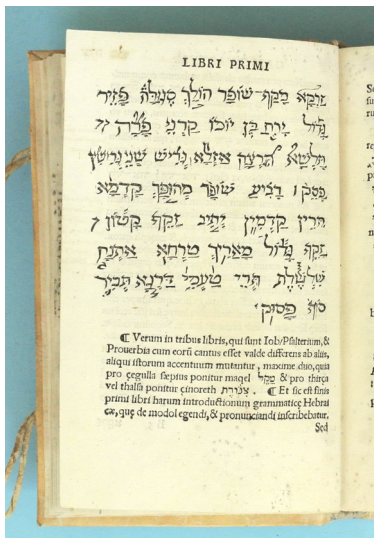 LIBRI PRIMI
זרקא מקף שופר הולך סגולה פזיר
גדול ירח בן יומו קרני פרה
תלשא תרצה אזלא גריש שני גרישין
פסק רביע שופר מהופך קדמא
תרין קדמין יתיב זקף קטון
זקף גדול מאריך טרחא אתנח
שלשלת תרי טעמי דרגא תביר
סוף פסוק:
¶ Verum in tribus libris, qui sunt Iob, Psalterium, &
Prouerbia cum eorū cantus esset valde differens ab aliis,
aliqui istorum accentuum mutantur, maxime duo, quia
pro çegulla sæpius ponitur maqel מקל & pro thirça
vel thalsa ponitur çinoreth צנורת. ¶ Et sic est finis
primi libri harum introductionum grammaticę Hebrai
cæ, quę de modo legendi, & pronunciandi inscribebatur.
Sed